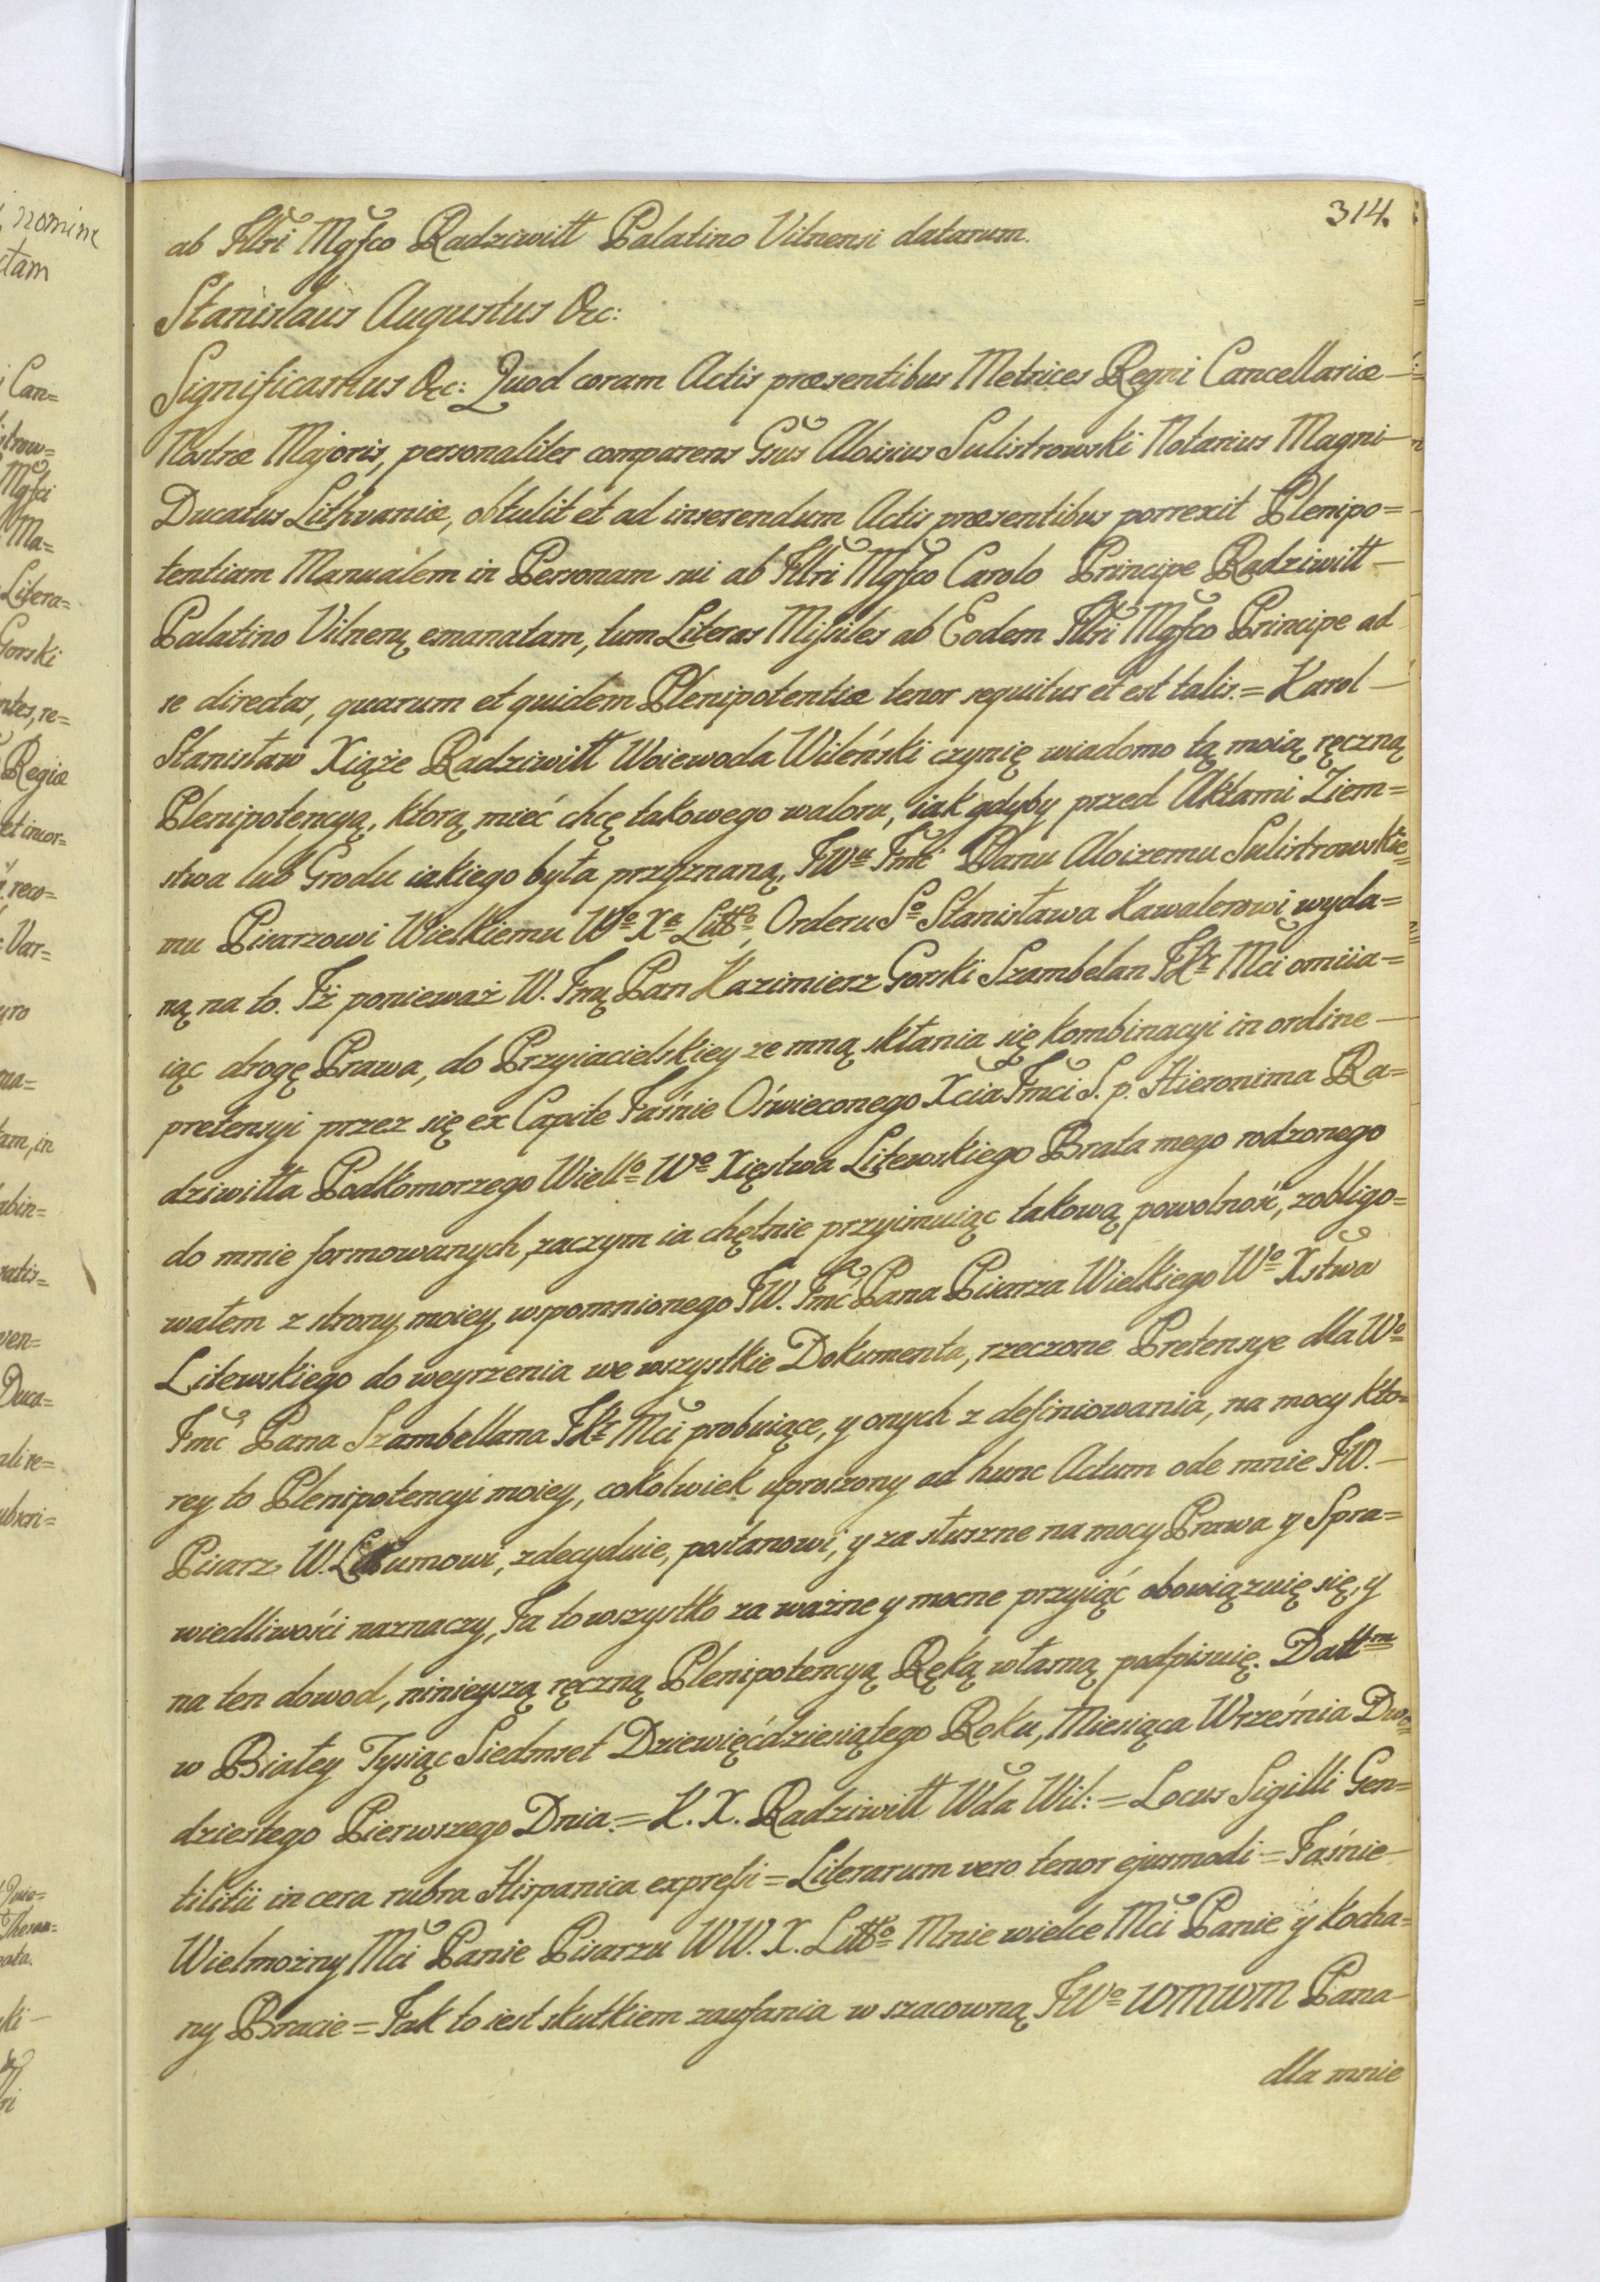 314.
ab Illri Mgfco Radziwiłł Palatino Vilnensi datarum.
Stanislaus Augustus &c:
Significamus &c: Quod coram Actis præsentibus Metrices Regni Cancellariæ
Nostræ Majoris, personaliter comparens Gsus Aloisius Sulistrowski Notarius Magni
Ducatus Lithvaniæ, obtulit et ad inserendum Actis præsentibus porrexit Plenipo=
tentiam Manualem in Personam sui ab Illri Mgfco Carolo Principe Radziwiłł
Palatino Vilnen emanatam, tum Literas Missiles ab Eodem Illri Mgfco Principe ad
se directas, quarum et quidem Plenipotentiæ tenor sequitur et est talis. = Karol
Stanisław Xiąże Radziwiłł Woiewoda Wileński czynię wiadomo tą moią ręczną
Plenipotencyą, którą mieć chcę takowego waloru, iak gdyby przed Aktami Ziem=
stwa lub Grodu iakiego była przyznaną, JWu Jmć Panu Aloizemu Sulistrowskie=
mu Pisarzowi Wielkiemu Wo Xa Litto, Orderu So Stanisława Kawalerowi wyda=
ną na to. Iż ponieważ W. Jmą Pan Kazimierz Gorski Szambelan JKr Mci omiia=
iąc drogę Prawa, do Przyiacielskiey ze mną skłania się kombinacyi in ordine
pretensyi przez się ex Capite Jaśnie Oświeconego Xcia Jmci S. p. Hieronima Ra=
dziwiłła Podkomorzego Wielko Wo Xięstwa Litewskiego Brata mego rodzonego
do mnie formowanych, zaczym ia chętnie przyimuiąc takową powolność, zobligo=
wałem z strony moiey wspomnionego JW. Jmć Pana Pisarza Wielkiego Wo Xstwa
Litewskiego do weyrzenia we wszystkie Dokumenta, rzeczone Pretensye dla Wo
Jmć Pana Szambellana JKr Mci probuiące, y onych z definiowania, na mocy kto=
rey to Plenipotencyi moiey, cokolwiek uproszony ad hunc Actum ode mnie JW.
Pisarz W. Lit umowi, zdecyduie, postanowi, y za słuszne na mocy Prawa y Spra=
wiedliwości naznaczy, Ja to wszystko za ważne y mocne przyiąć obowiązuię się, y
na ten dowod, ninieyszą ręczną Plenipotencyą Ręką własną podpisuię. Dattm
w Białey Tysiąc Siedmset Dziewięćdziesiątego Roku, Miesiąca Września Dwu=
dziestego Pierwszego Dnia. = K. X. Radziwiłł Wda Wil: = Locus Sigilli Gen=
tilitii in cera rubra Hispanica expressi = Literarum vero tenor ejusmodi = Jaśnie
Wielmożny Mci Panie Pisarzu WW. X. Litto Mnie wielce Mci Panie y kocha=
ny Bracie = Jak to iest skutkiem zaufania w szacowną JWo WMWM Pana
dla mnie